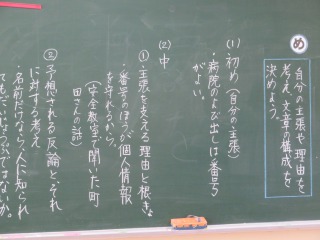 め
自分の主張や理由を
考え、文章の構成を
決めよう。
(1) 初め(自分の主張)
・病院のよび出しは番号
がよい。
(2) 中
① 主張を支える理由と根きょ
・番号のほうが個人情報
を守れるから。
(安全教室で聞いた町
田さんの話)
② 予想される反論とそれ
に対する考え
・名前だけなら、人に知られ
てもだいじょうぶではないか。